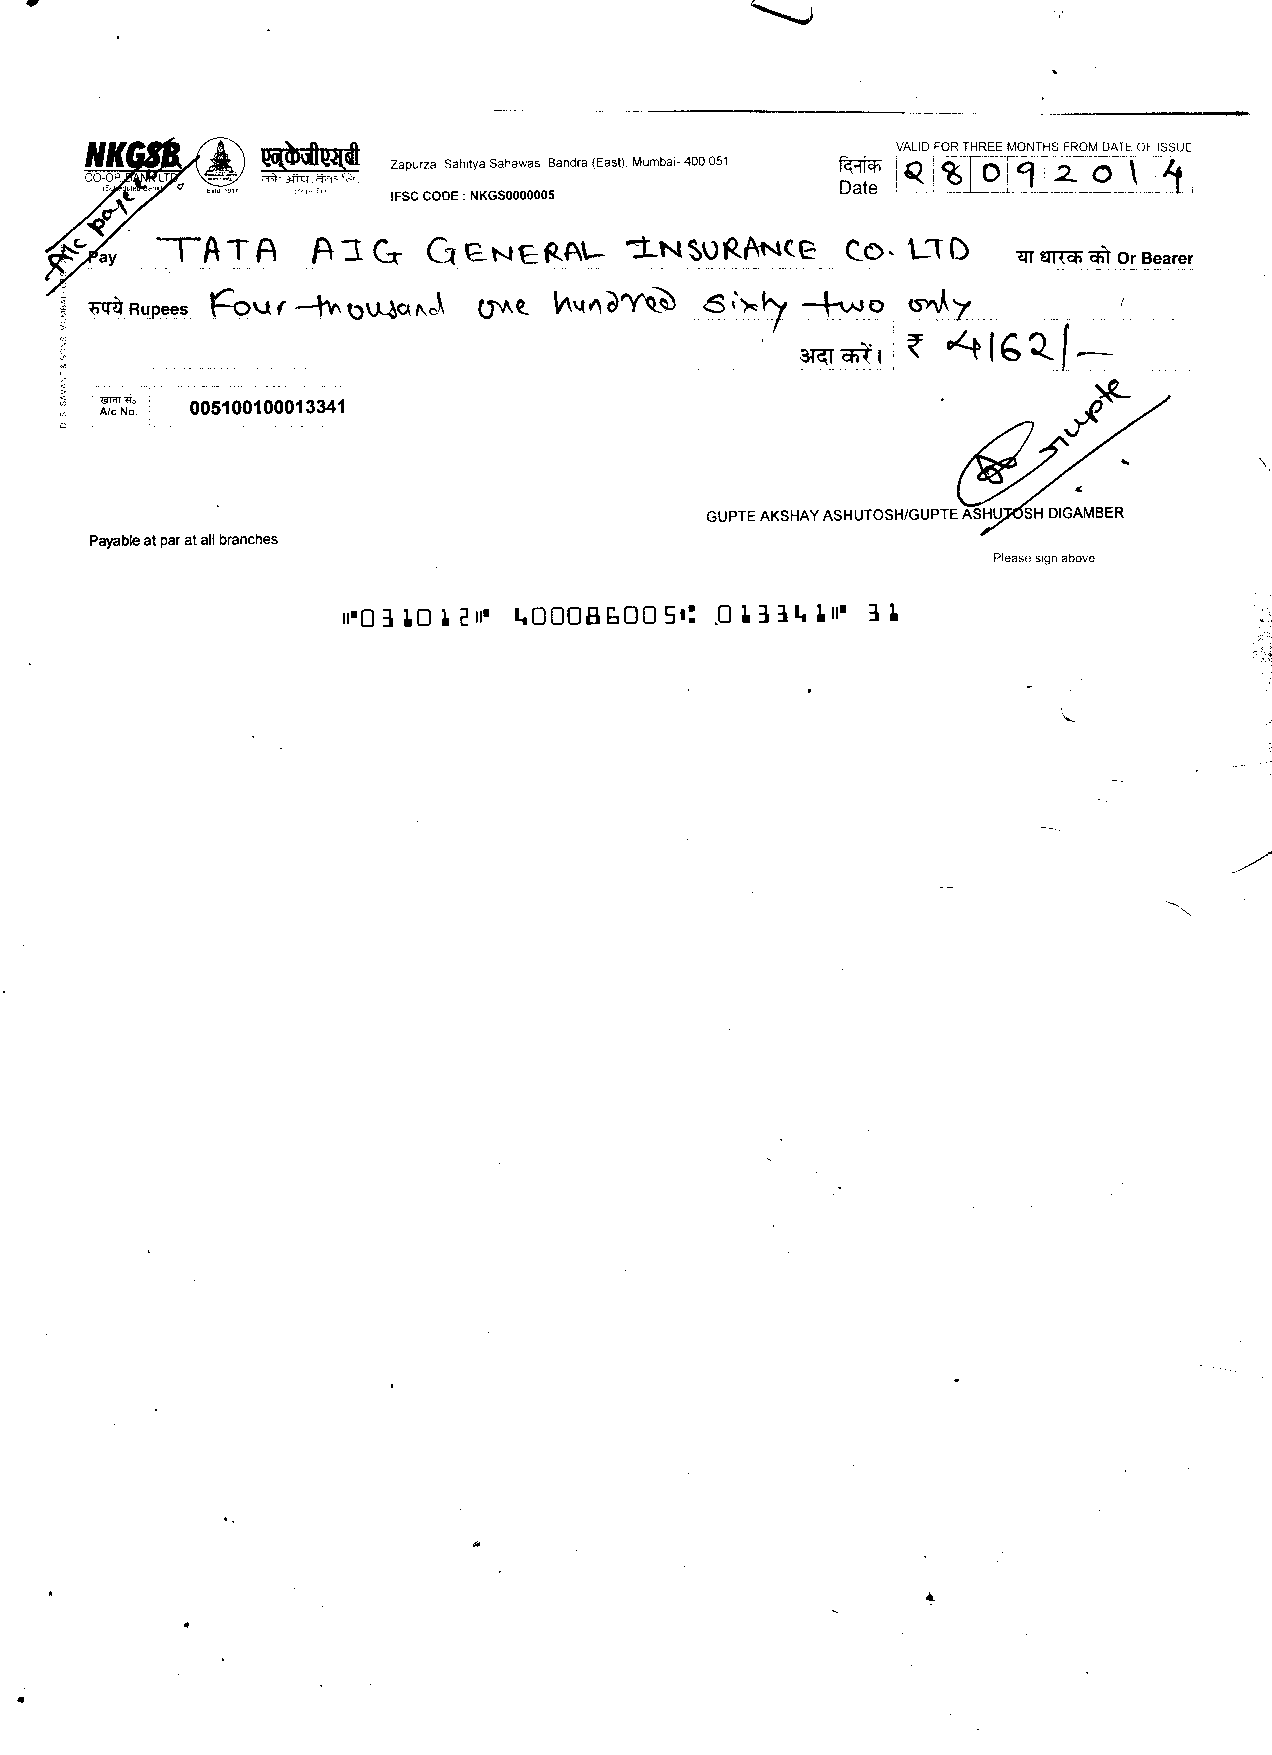 VALID FOR THREE MONTHS FROM DATE OF ISSUE
NKGSB
CO-OP. BANK LTD.
एनकेजीएसबी
Zapurza, Sahitya Sahawas, Bandra (East), Mumbai- 400 051
IFSC CODE : NKGS0000005
दिनांक
Date 28092014
A/c payee
Pay TATA AIG GENERAL INSURANCE CO. LTD या धारक को Or Bearer
रुपये Rupees Four thousand one hundred sixty two only
अदा करें। ₹ 4162/-
खाता सं.
A/c No. 005100100013341
Gupte
GUPTE AKSHAY ASHUTOSH/GUPTE ASHUTOSH DIGAMBER
Payable at par at all branches
Please sign above
⑈031012⑈ 400086005⑆ 013341⑈ 31